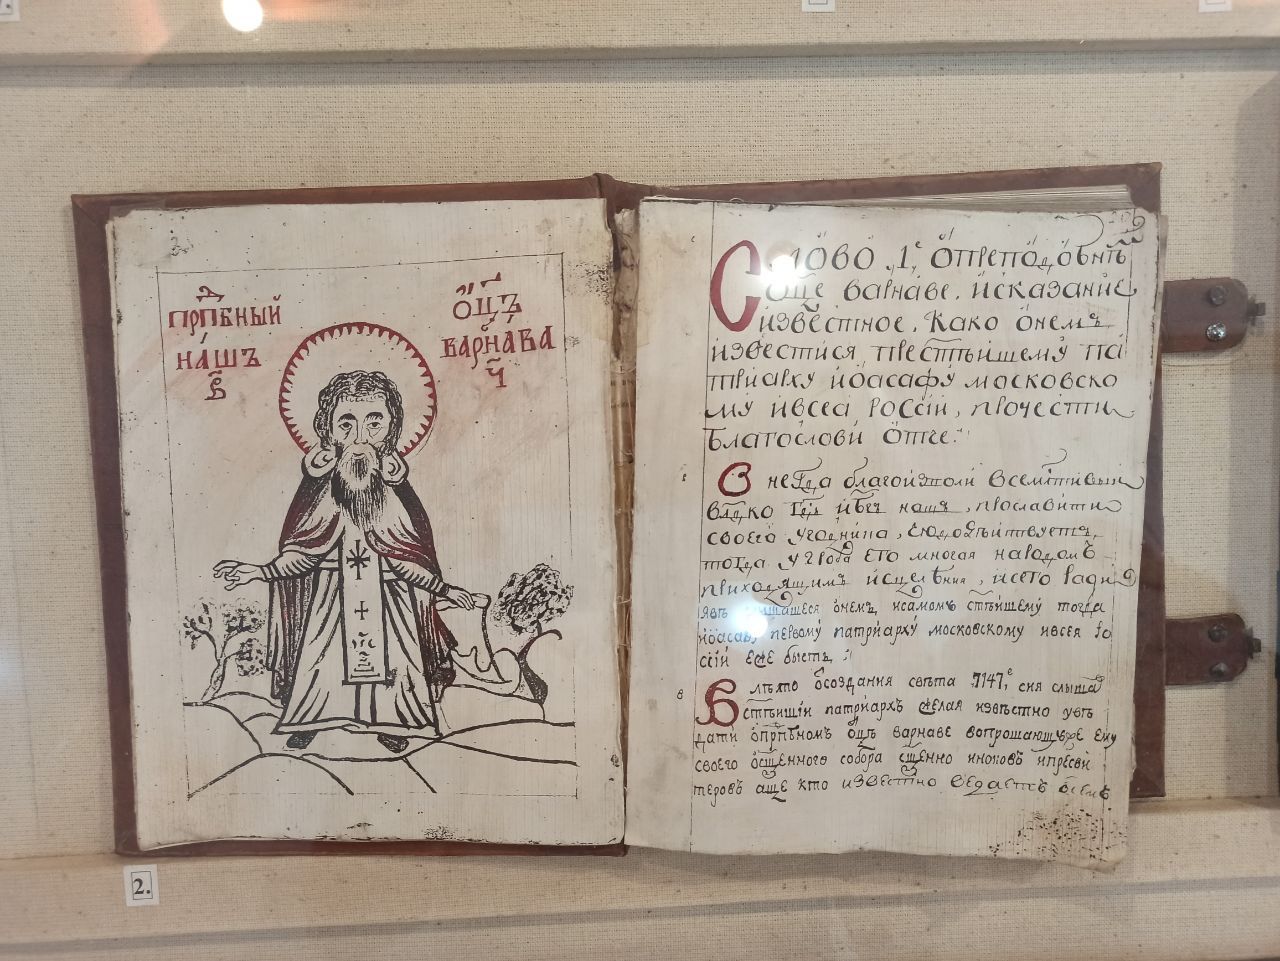 прпⷣбный
нашъ
ѻц҃ъ
варнава
Слово 1е ѻ препⷣобнѣ
ѻц҃е варнаве, и сказание
известное, како ѻ немъ
известися прест҃ѣишему па
триарху иѻасафу московско
му и всеа россіи, прочести
благослови ѻтче.
Внегда благоизволи всемлⷭтивыи
влⷣко гдⷭь и бг҃ъ нашъ, прославити
своего угодника,
тогда у гроба его многая народомъ
приходящимъ исцеления, и сего ради
ѻ немъ, и самомъ ст҃ѣишему тогда
иѻасафу первому патриарху московскому и всея ро
ссіи еже бысть
В лѣто ѿ создания света 7147е, сия слыша
ст҃ѣишіи патриархъ желая известно увѣ
дати ѻ прпⷣбномъ ѻц҃ъ варнаве вопрошающу же ему
своего ѻсщ҃енного собора сщ҃енно иноковъ и пресви
теровъ аще кто известно ведаетъ ѻ семъ
2.